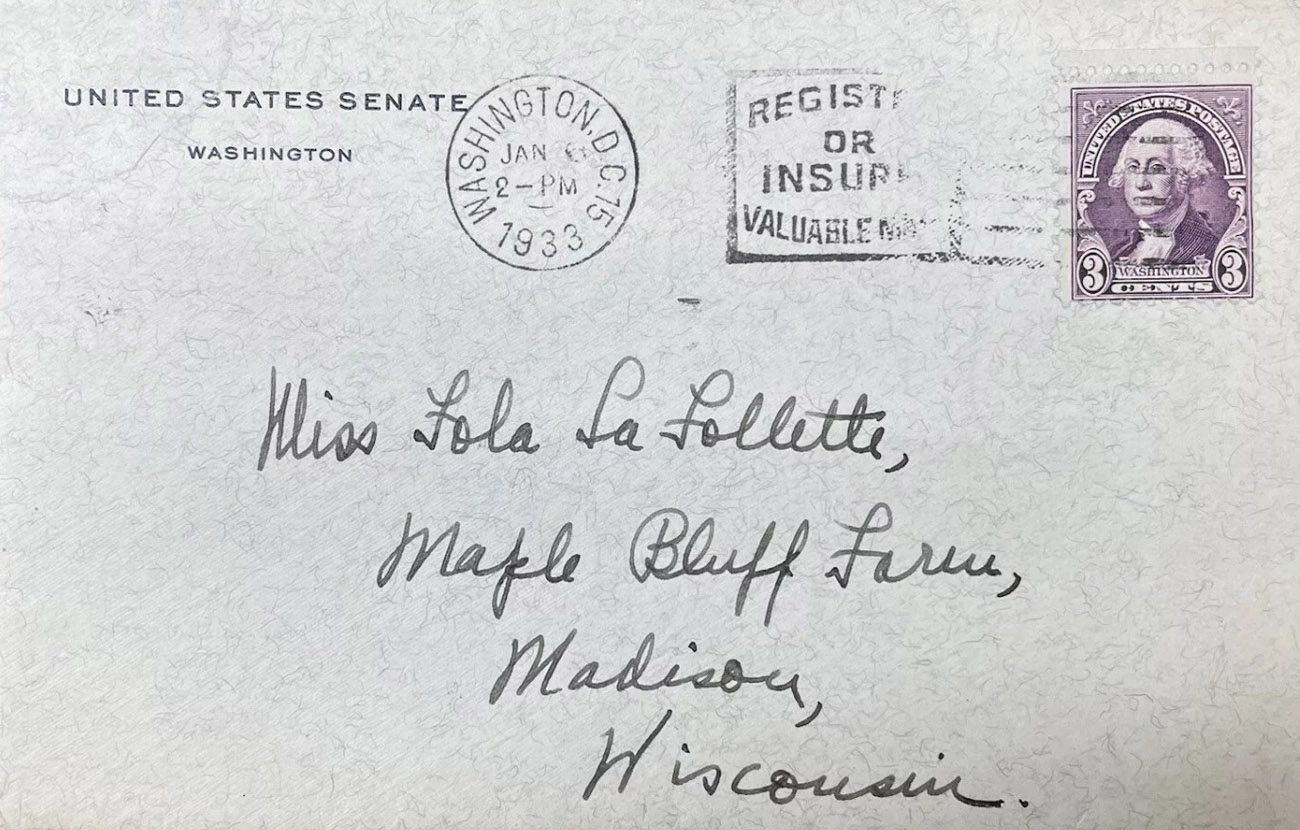 UNITED STATES SENATE
WASHINGTON
WASHINGTON, D.C. 15
JAN
2-PM
1933
REGISTER
OR
INSURE
VALUABLE MAIL
UNITED STATES POSTAGE
3 WASHINGTON 3
CENTS
Miss Fola La Follette,
Maple Bluff Farm,
Madison,
Wisconsin.